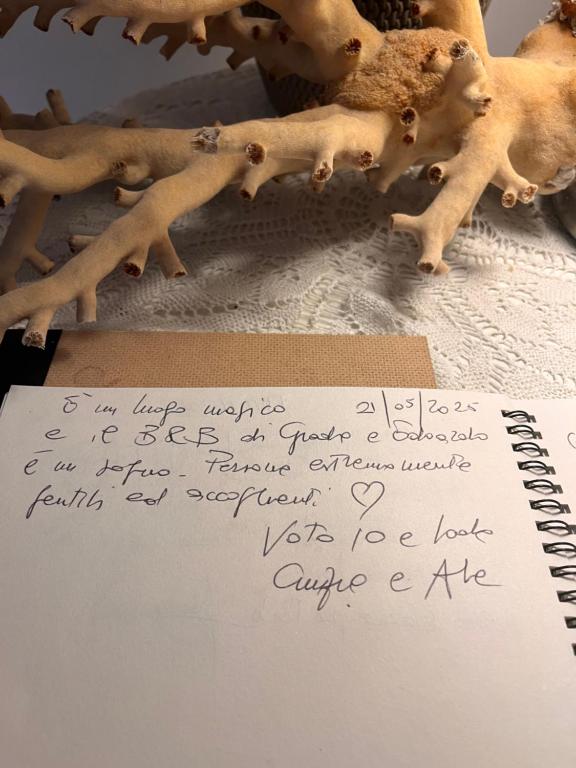 È un luogo magico 21/05/2025
e il B&B di e Edoardo
è un sogno. Persone estremamente
gentili ed accoglienti ♡
Voto 10 e lode
e Ale